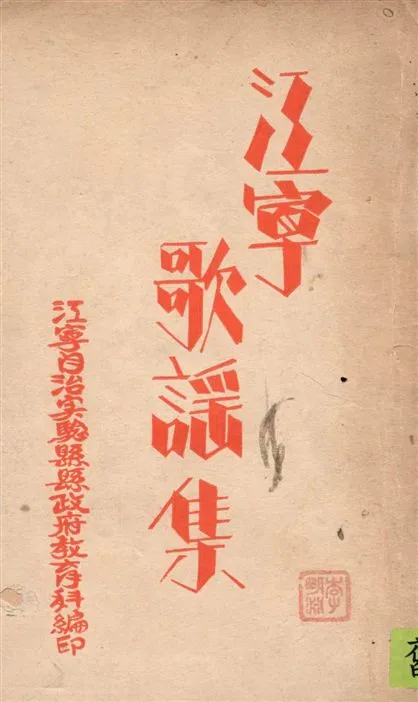 江寧
歌謡集
江寧自治实驗縣縣政府教育科編印